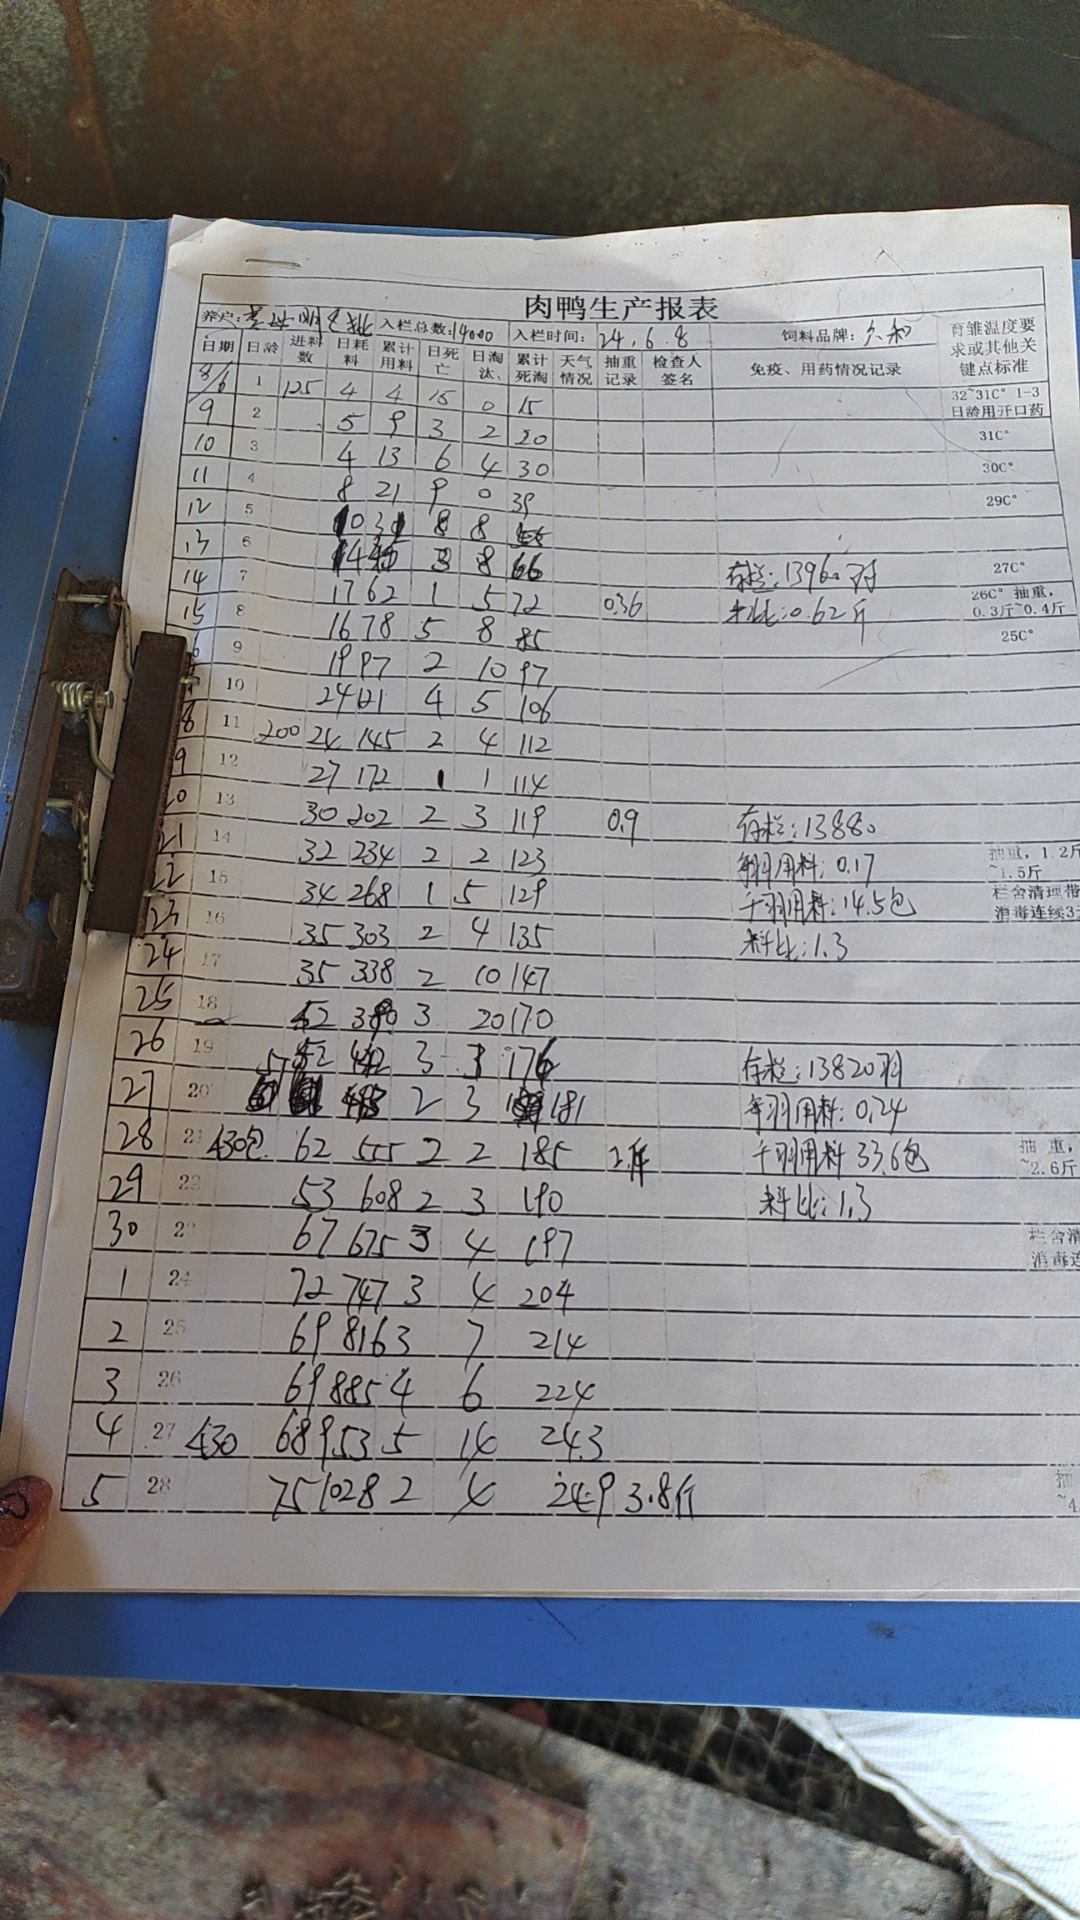 肉鸭生产报表
养户: 入栏总数:14000 入栏时间: 24.6.8 饲料品牌:六和 育雏温度要求或其他关键点标准
日期 日龄 进料数 日耗料 累计用料 日死亡 日淘汰、 累计死淘 天气情况 抽重记录 检查人签名 免疫、用药情况记录
8/6 1 125 4 4 15 0 15 32~31C° 1-3日龄用开口药
9 2 5 9 3 2 20 31C°
10 3 4 13 6 4 30 30C°
11 4 8 21 9 0 39 29C°
12 5 10 31 8 8
13 6 14 3 8 66 27C°
14 7 17 62 1 5 72 0.36 存栏:13960 26C° 抽重,0.3斤~0.4斤
15 8 16 78 5 8 85 料比:0.62斤 25C°
6 9 19 97 2 10 97
10 24 121 4 5 106
8 11 200 24 145 2 4 112
9 12 27 172 1 1 114
20 13 30 202 2 3 119 0.9 存栏:13880
21 14 32 234 2 2 123 每羽用料:0.17 抽重,1.2斤~1.5斤
22 15 34 268 1 5 129 千羽用料:14.5包 栏舍清理带消毒连续3
23 16 35 303 2 4 135 料比:1.3
24 17 35 338 2 10 147
25 18 42 380 3 20 170
26 19 52 442 3 3 176 存栏:13820羽
27 20 493 2 3 181 每羽用料:0.24
28 21 430包 62 555 2 2 185 2.斤 千羽用料33.6包 抽重,~2.6斤
29 22 53 608 2 3 190 料比:1.3
30 2 67 675 3 4 197 栏舍清消毒连
1 24 72 747 3 4 204
2 25 69 816 3 7 214
3 26 69 885 4 6 224
4 27 430 68 953 5 14 243
5 28 75 1028 2 4 249 3.8斤 抽~4